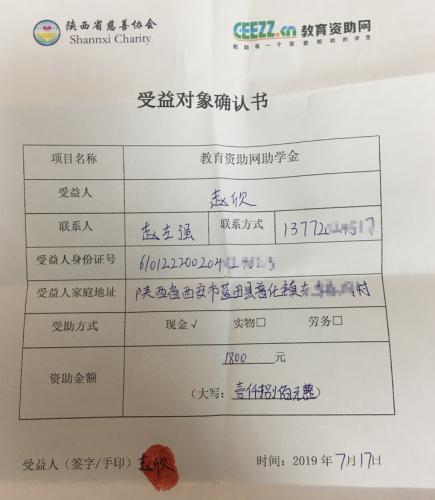 陕西省慈善协会
Shannxi Charity
CEEZZ.cn 教育资助网
帮助每一个需要帮助的学生
受益对象确认书
项目名称 教育资助网助学金
受益人 赵欣
联系人 赵左强 联系方式 13772
受益人身份证号 610122200204
受益人家庭地址 陕西省西安市蓝田县普化镇 村
受助方式 现金√ 实物□ 劳务□
资助金额 1800 元
(大写: 壹仟捌佰元整)
受益人(签字/手印) 赵欣 时间: 2019 年 7月17日